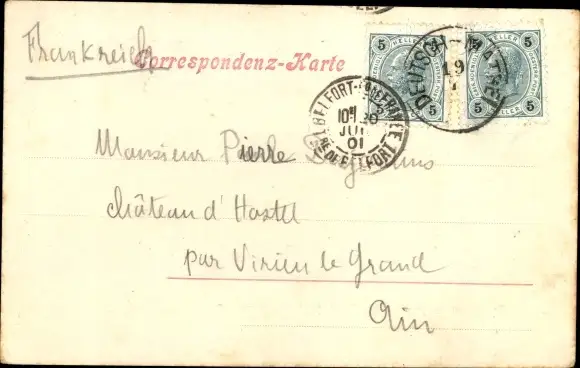 Frankreich
Correspondenz-Karte
5 HELLER 5
5 5
5 HELLER 5
5 5
DEUTSCH-MATREI
19
7
BELFORT
10
JUIL
01
BELFORT
Monsieur Pierre
château d'Hostel
par Virieu le Grand
Ain